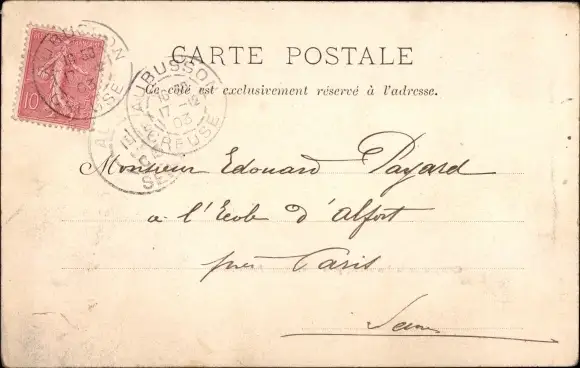 CARTE POSTALE
Ce côté est exclusivement réservé à l'adresse.
10
AUBUSSON
17
03
CREUSE
Monsieur Edouard Payard
a l'Ecole d'Alfort
près Paris
Seine